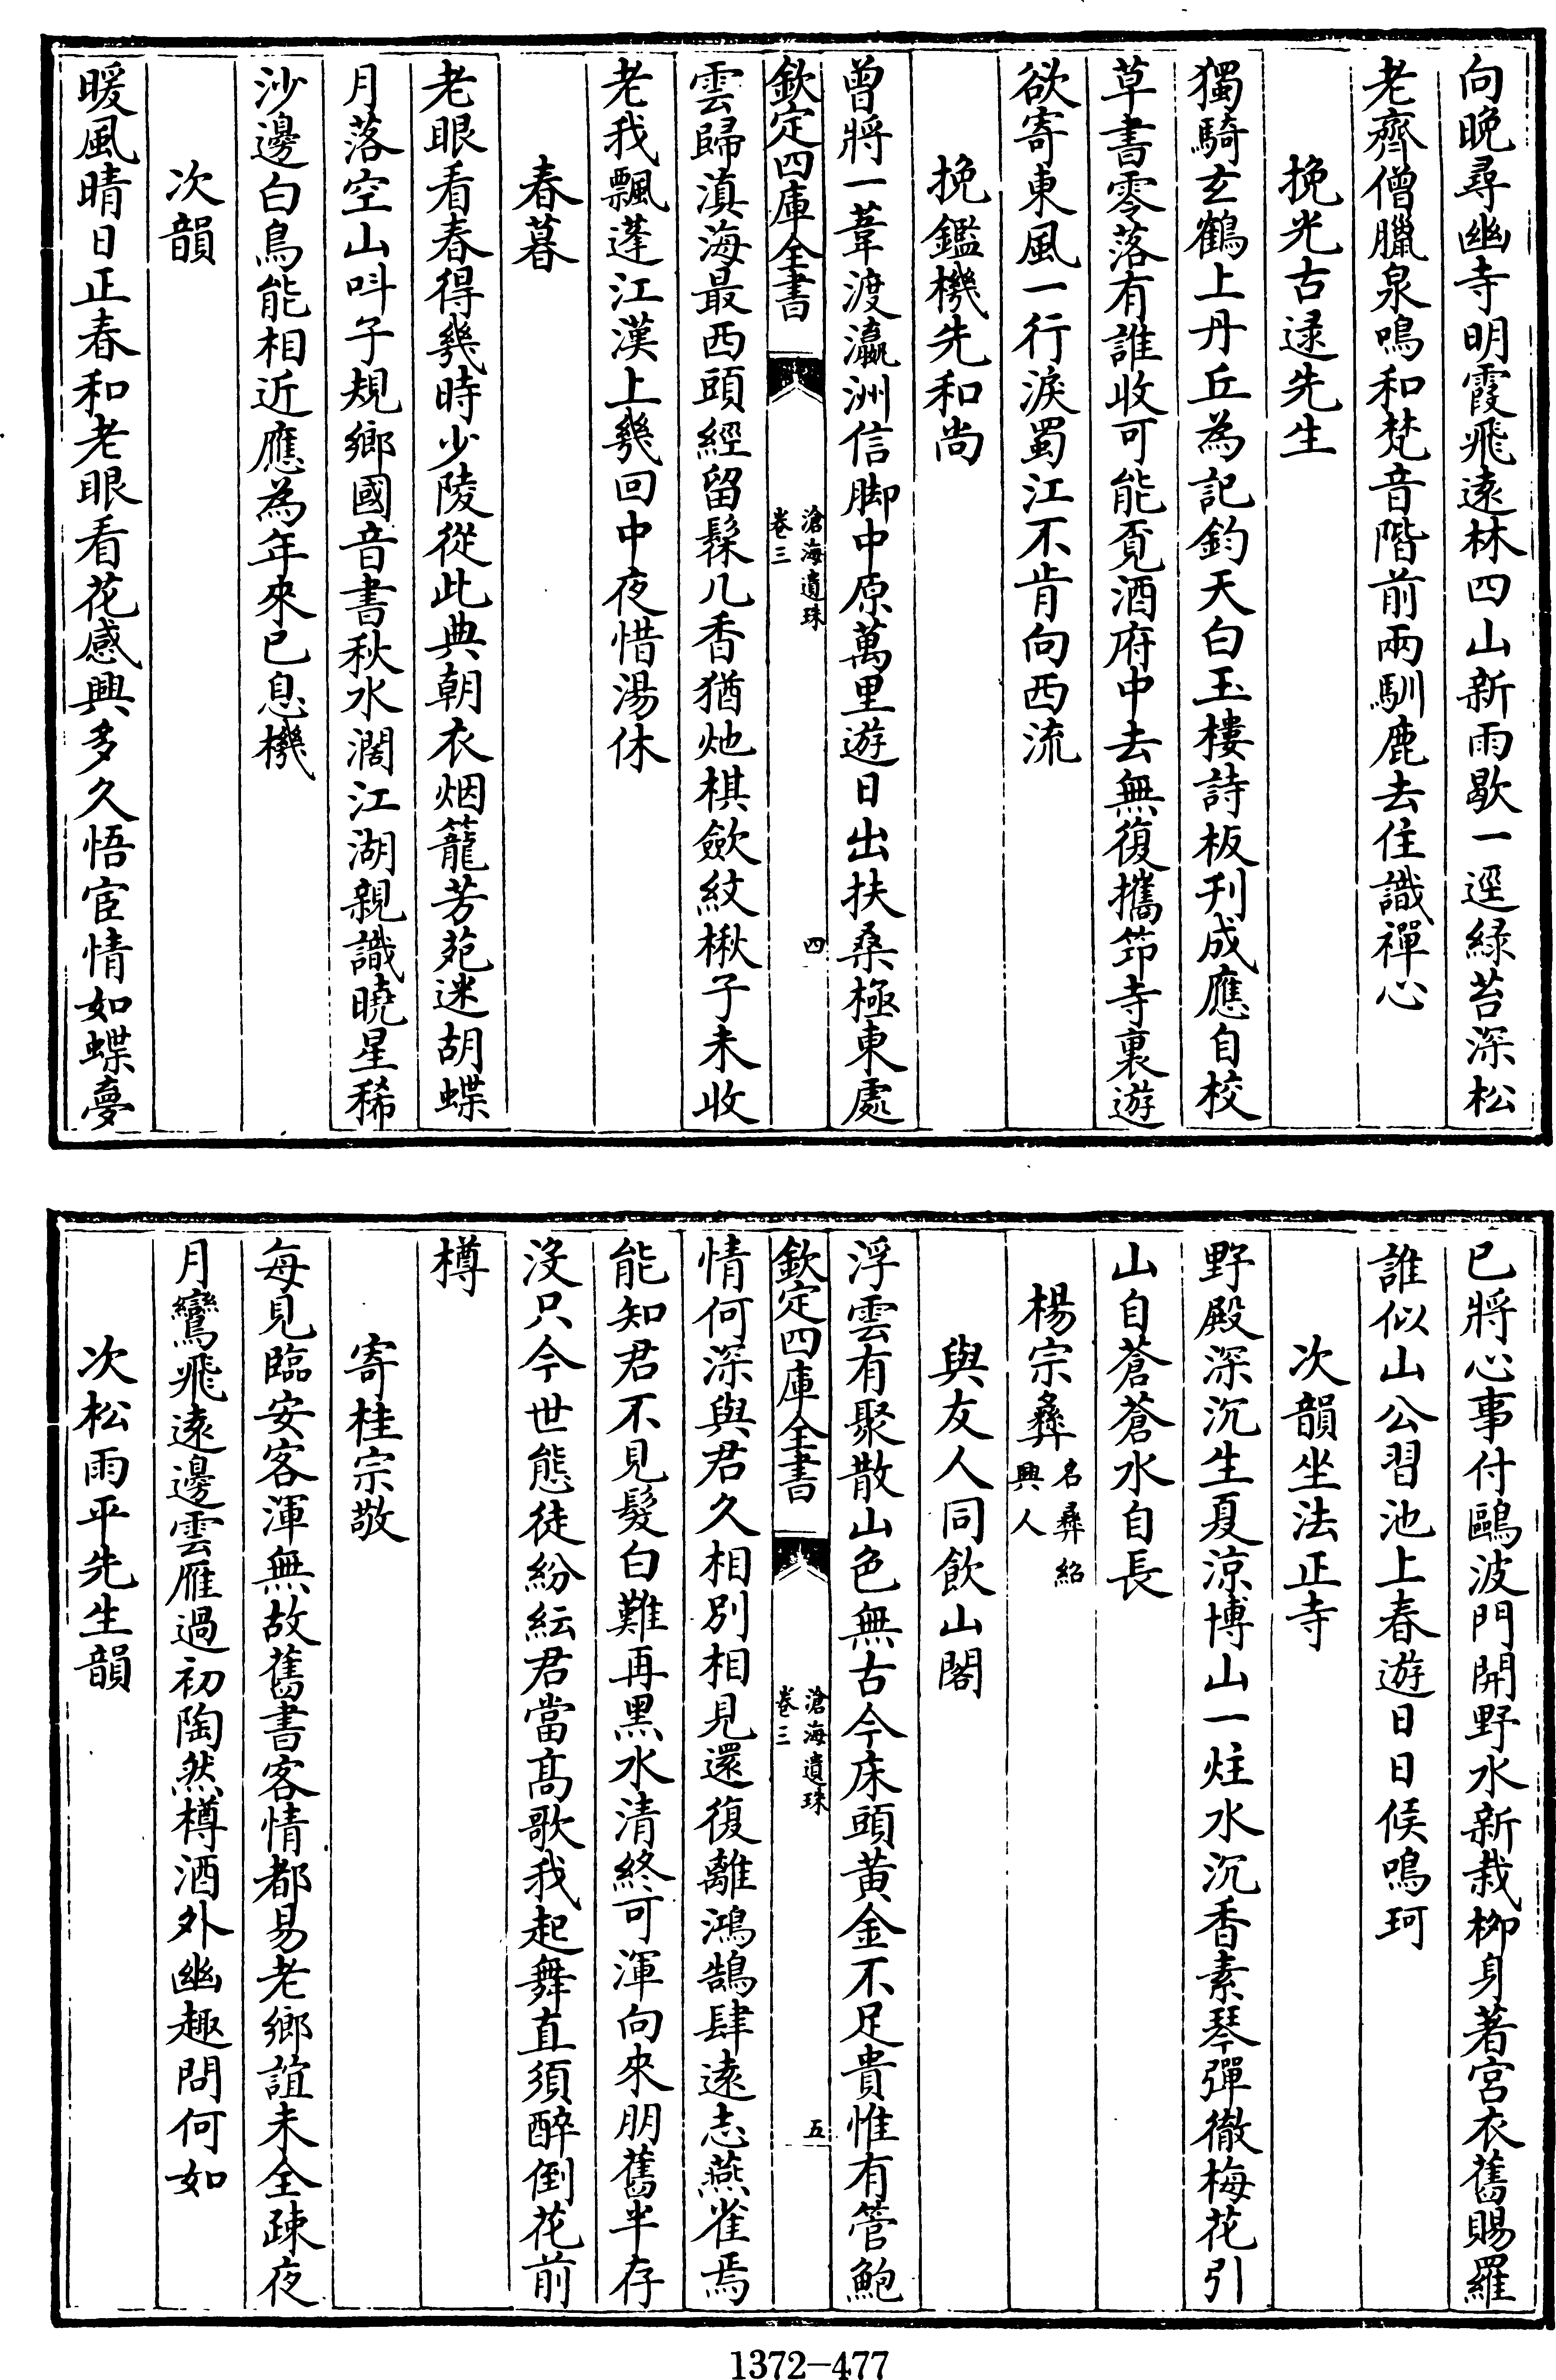 向晚尋幽寺明霞飛遠林四山新雨歇一逕緑苔深松
老齊僧臘泉鳴和梵音階前兩馴鹿去住識禪心
挽光古逯先生
獨騎玄鶴上丹丘為記鈞天白玉樓詩板刋成應自校
草書零落有誰收可能覔酒府中去無復攜笻寺裏遊
欲寄東風一行淚蜀江不肯向西流
挽鑑機先和尚
曽將一葦渡瀛洲信脚中原萬里遊日出扶桑極東處
欽定四庫全書
滄海遺珠
卷三
四
雲歸滇海最西頭經留髹几香猶灺棋歛紋楸子未收
老我飄蓬江漢上幾回中夜惜湯休
春暮
老眼看春得幾時少陵從此典朝衣烟籠芳苑迷胡蝶
月落空山呌子規鄉國音書秋水濶江湖親識曉星稀
沙邊白鳥能相近應為年來已息機
次韻
暖風晴日正春和老眼看花感興多久悟宦情如蝶夢
已將心事付鷗波門開野水新栽栁身著宮衣舊賜羅
誰似山公習池上春遊日日候鳴珂
次韻坐法正寺
野殿深沉生夏凉博山一炷水沉香素琴彈徹梅花引
山自蒼蒼水自長
楊宗彜
名彜紹
興人
與友人同飲山閣
浮雲有聚散山色無古今床頭黄金不足貴惟有管鮑
欽定四庫全書
滄海遺珠
卷三
五
情何深與君久相别相見還復離鴻鵠肆遠志燕雀焉
能知君不見髮白難再黒水清終可渾向來朋舊半存
沒只今世態徒紛紜君當髙歌我起舞直須醉倒花前
樽
寄桂宗敬
每見臨安客渾無故舊書客情都易老鄉誼未全疎夜
月鸞飛遠邊雲雁過初陶然樽酒外幽趣問何如
次松雨平先生韻
1372-477